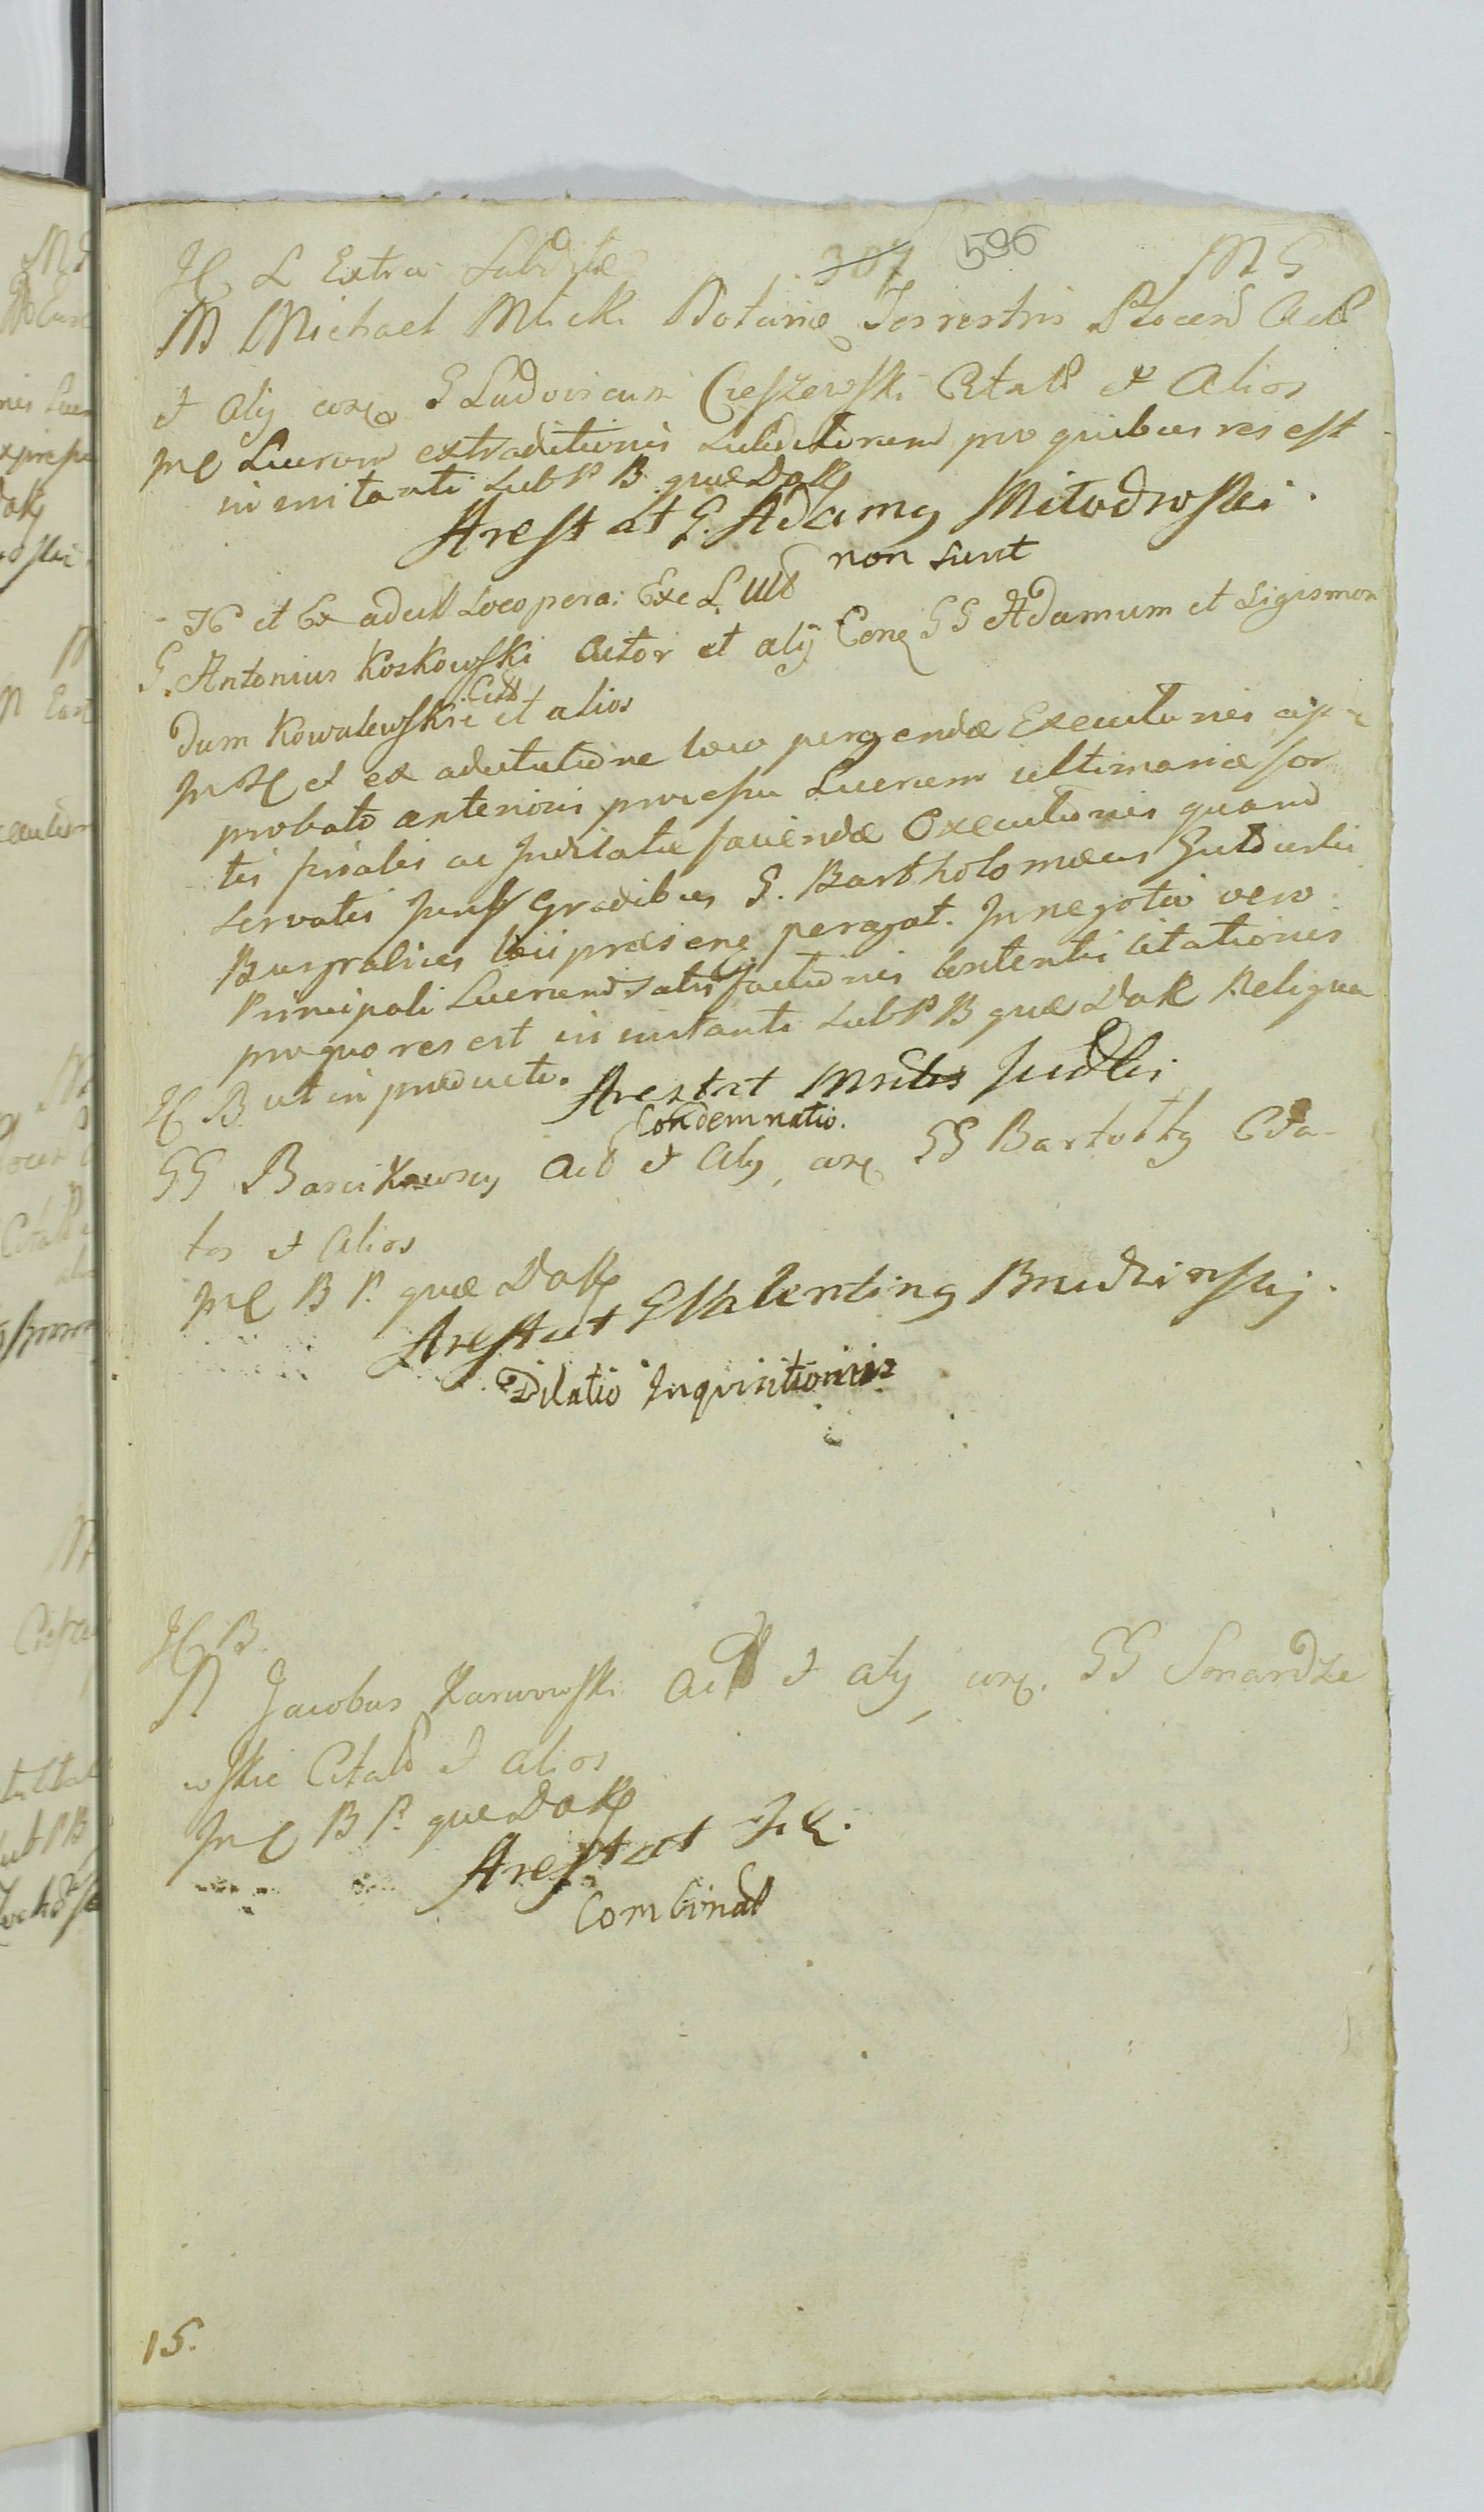 H L Extra Subditæ 307 596 M G
M Michael Mlicki Notariæ Terrestris Plocen Act
et Alij conq G Ludovicum Cieszewski Citat et Alios
In C Lucrum extraditionis subditorum pro quibus res est
in instanti sub P B quæ Dak
Arestat G. Adamq Mitodroski.
non sunt
H et Ex adcit Loco pera: Exe L Ult
G. Antonius Koskowski Actor et alij Conq GG Adamum et Sigismon
dum Kowalewskie Citt et alios
In H et ex adcitatione loco peragendæ Executionis ap
probato anterioris processu Lucrum ultimariæ for
tis ac Inditatæ faciendæ Executionis quam
servatis Juris Gradibus G. Bartholomæus
Burgrabius loci præsens peragat. In negotio vero
Principali Lucrum satisfactionis contentis citationis
pro quo res est in instanti sub P B quæ Dak Reliqua
ut in producto.
Arestat Mntis Judlis
H B
Condemnatio.
GG Barcikowscy Act et Alij conq GG Bartolty Cita-
tos et Alios
In C B P. quæ Dak
Arestat G Valentinq Brudzinskij.
Dilatio Inquisitionis
H B.
N Jacobus Karwowski Act et alij conq. GG Smardze
wskie Citat et alios
In C B P. quæ Dak
Arestat
Combinat
15.